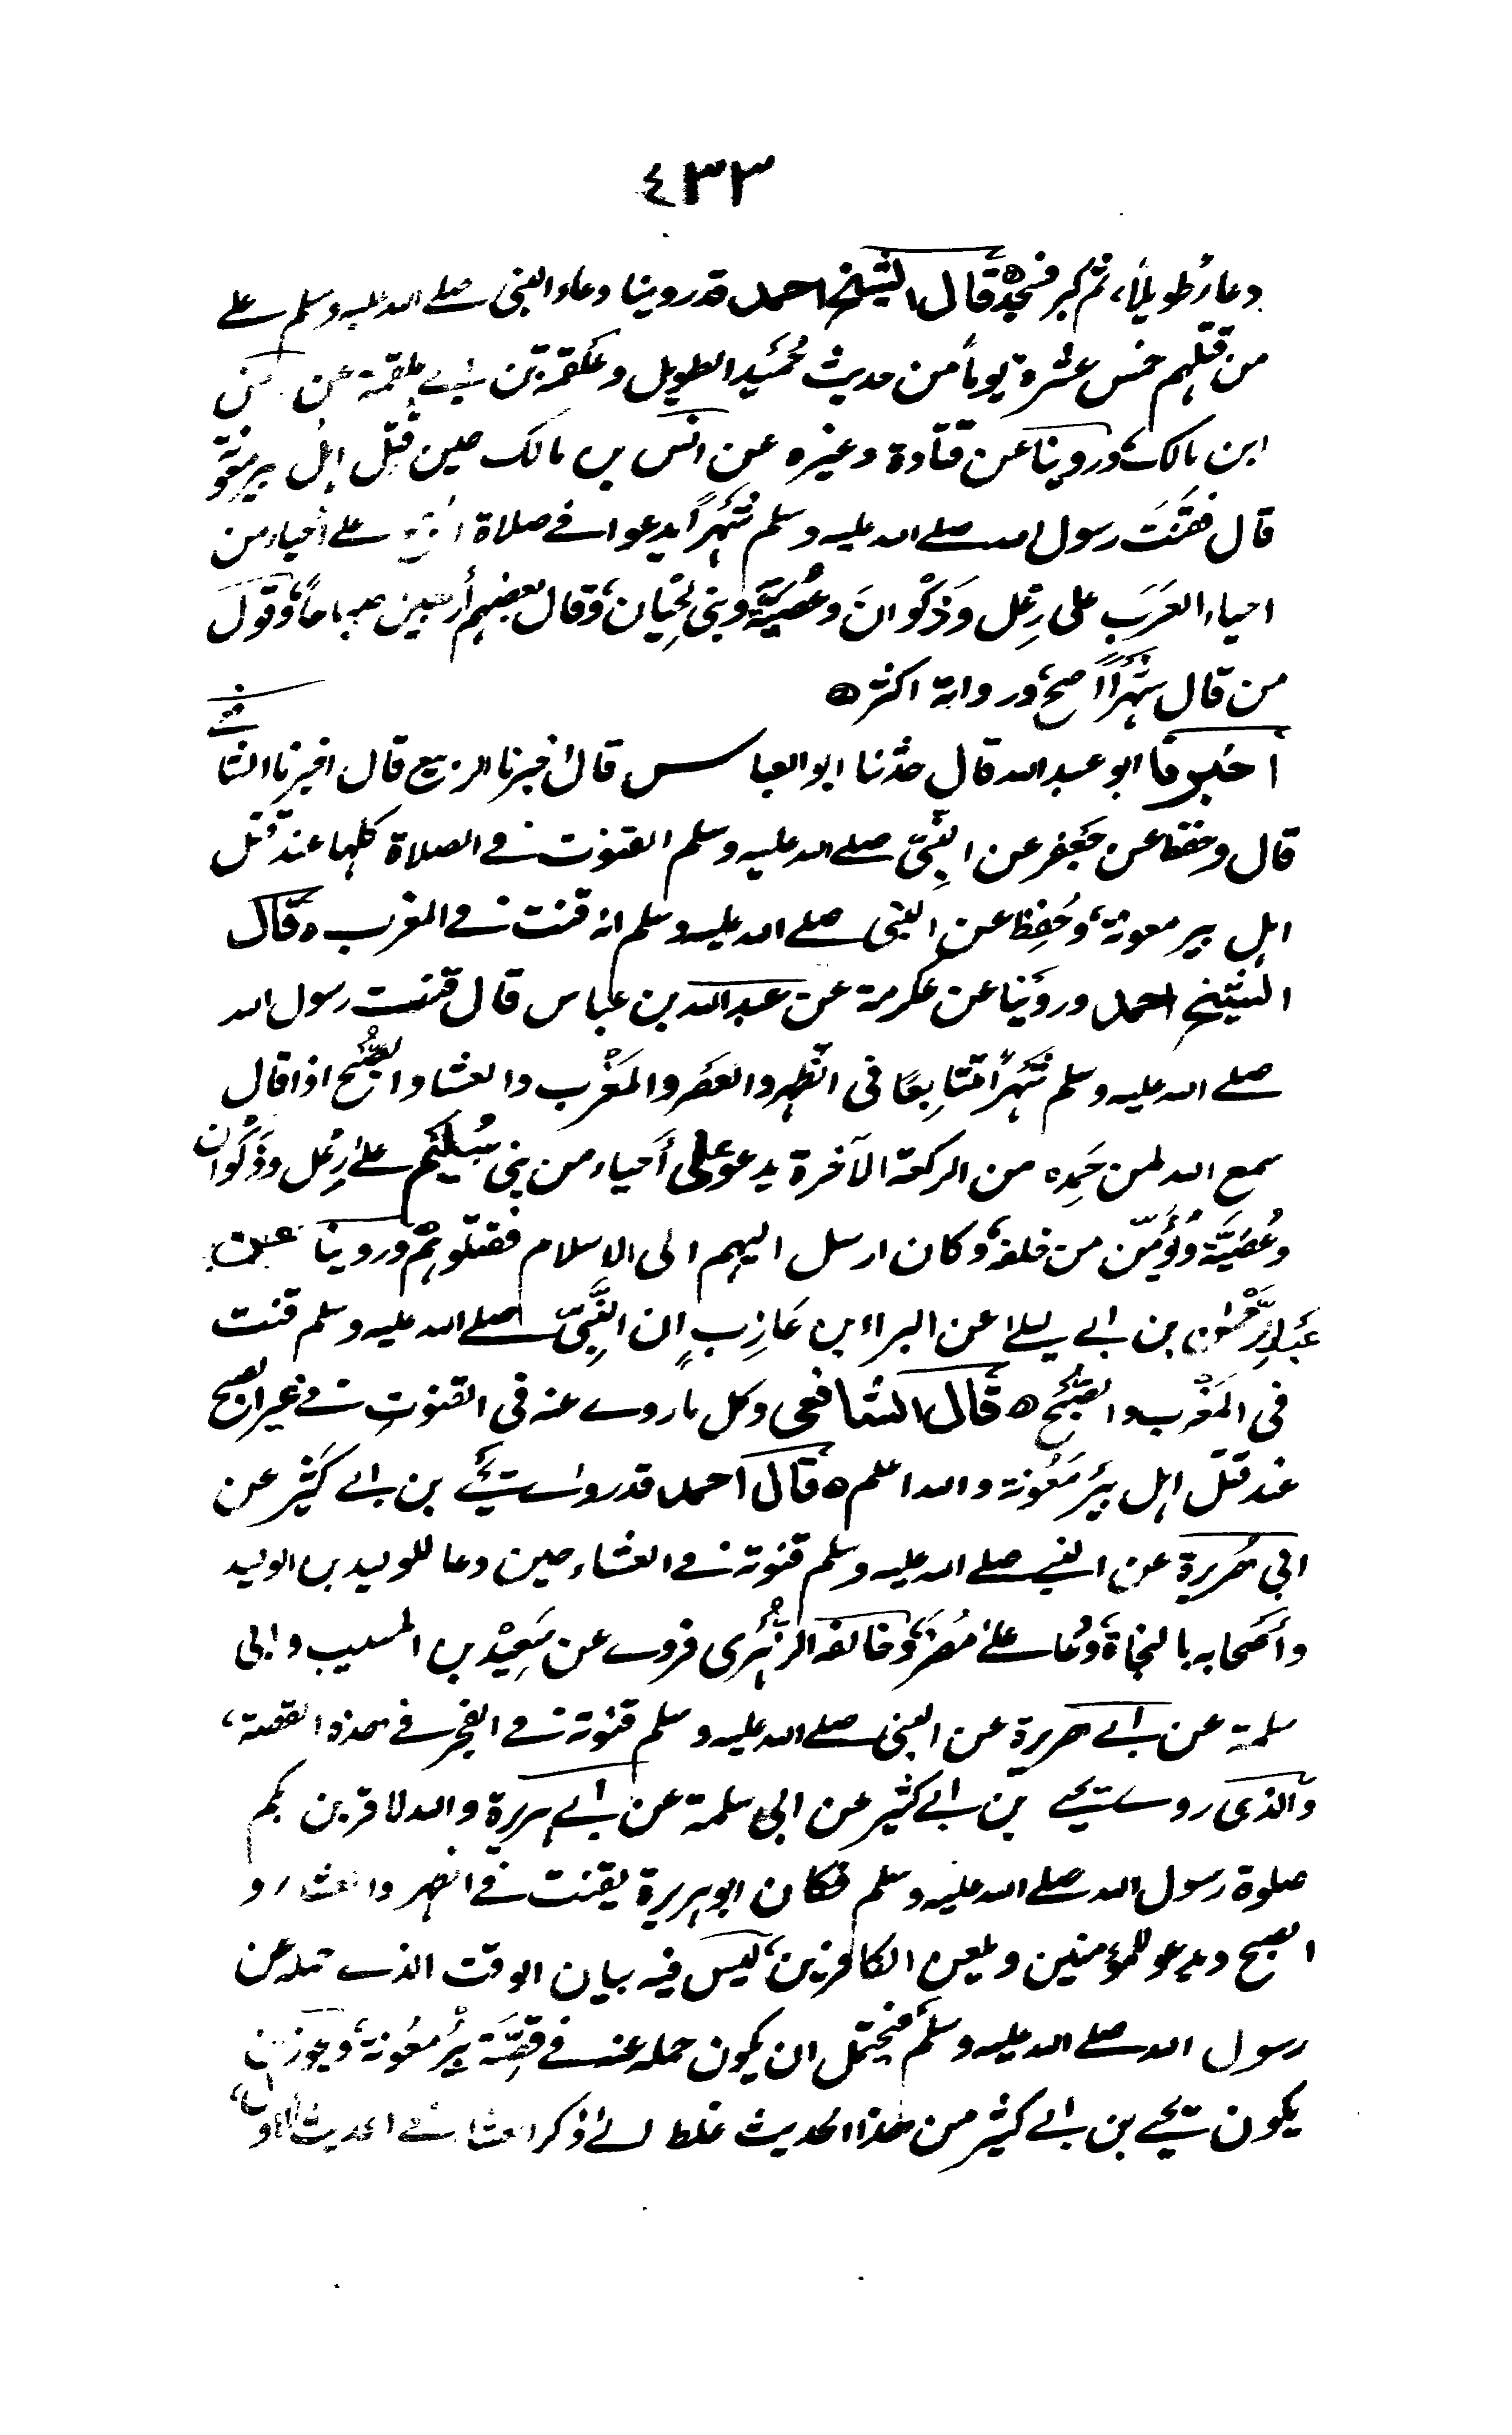 ٤٣٣
دعاءً طويلاً، ثم كبر فسجد ه قال الشيخ احمد قد روينا دعاء النبى صلے الله عليه وسلم علے
من قتلهم خمس عشرة يوماً من حديث حُمَيد الطويل وعلقمة بن ابے علقمة عن انس
ابن مالك، وروينا عن قتادة وغيره عن انس بن مالك حين قُتِل اهل بير معونة
قال فقَنَتَ رسول الله صلے الله عليه وسلم شَهْراً يدعوا فے صلاة علے أحياء من
احياء العَرَب على رِعْل وَذَكْوانَ وعُصَيَّة وبنى لِحْيان، وقال بعضهم أربعين صباحاً، وقول
من قال شَهْراً اصح، ورواته اكثر ه
اخبرنا ابو عبد الله قال حدثنا ابو العباس قال اخبرنا الربيع قال اخبرنا الشافعے
قال وحفظ عن جَعْفر عن النَّبِىّ صلے الله عليه وسلم القنوت فے الصلاة كلها عند قتل
اهل بير معونة، وحُفِظ عن النبى صلے الله عليه وسلم انه قنت فے المغرب ه وقال
الشيخ احمد وروَينا عن عكرمة عن عبد الله بن عباس قال قنت رسول الله
صلے الله عليه وسلم شَهْراً متتابِعًا فى الظُّهر والعَصَر والمَغْرب والعشاء والصُّبْح اذا قال
سمع الله لمن حَمِده من الركعة الآخرة يدعو على أحياء من بنى سُلَيْم علےٰ رِعْل وذَكْوان
وعُصَيَّة ويُؤَمِّن من خلفه، وكان ارسل اليهم الى الاسلام فقتلوهم وروينا عن
عَبد الرَّحْمٰن بن ابے ليلےٰ عن البراء بن عَازِبٍ ان النَّبِىّ صلے الله عليه وسلم قنت
فى المَغْرب والصُّبْح ه قال الشافعى وكل ما روے عنه فى القنوت فے غير الصبح
عند قتل اهل بِيْر مَعُونة والله اعلم ه قال احمد قد روےٰ يحيےٰ بن ابے كَثير عن
ابى هُريرة عن النبے صلے الله عليه وسلم قنوته فے العشاء حين دعا للوليد بن الوليد
وأصحَابه بالنجاة، ودُعاءه علےٰ مُضَر، وخالفه الزُّهْرى فروے عن سَعِيْد بن المسيب وابى
سلمة عن ابے هريرة عن النبى صلے الله عليه وسلم قنوته فے الفجر فے هذه القصة،
والذى روے يحيے بن ابے كثير عن ابى سلمة عن ابے هريرة والله لاقربن بكم
صلوة رسول الله صلے الله عليه وسلم فكان ابو هريرة يقنت فے الظهر والعشاء و
الصبح ويدعو للمؤمنين ويلعن الكافرين، ليس فيه بيان الوقت الذے حمله عن
رسول الله صلے الله عليه وسلم فيحتمل ان يكون حمله عنه فے قِصَّة بِيْر مَعُونة، ويجوز ان
يكون يحيے بن ابے كثير من هذا الحديث غلط الےٰ ذكر العشاء فے الحديث الاول،